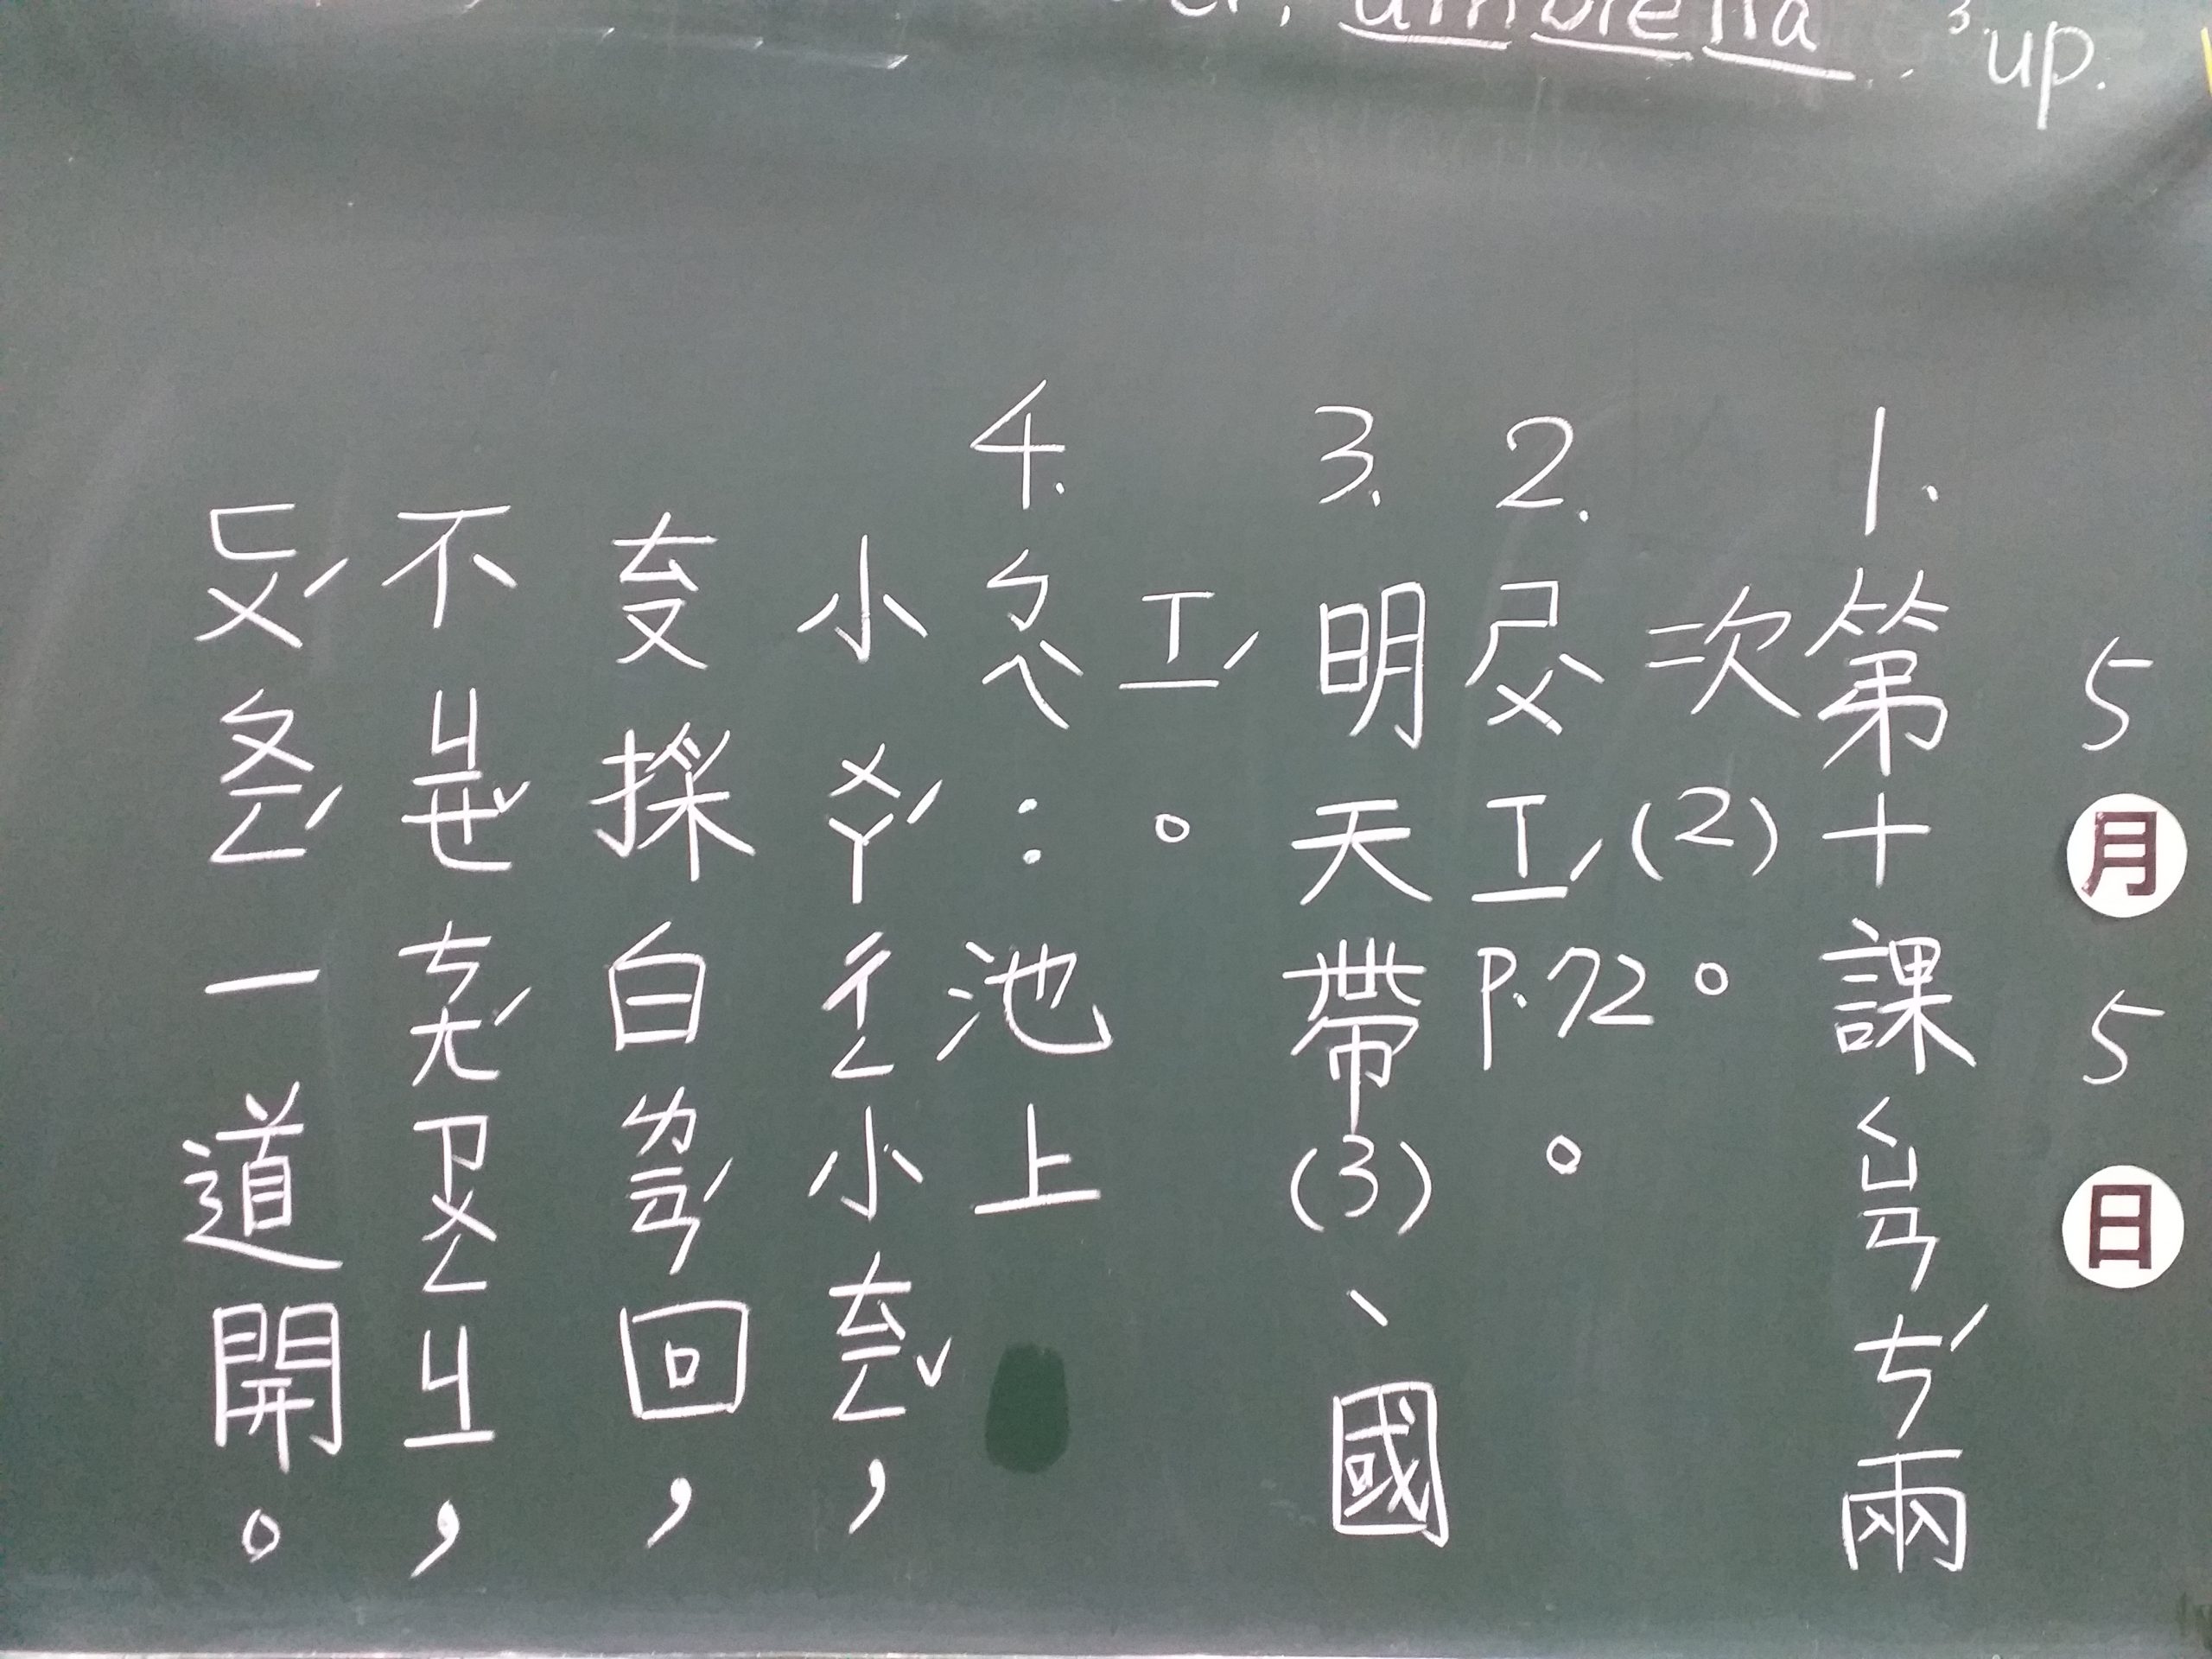 umbrella 3 up.
5月5日
1.第十課ㄑㄩㄢˊㄘˊ兩
次(2)。
2.ㄕㄨˋㄒㄧˊP.72。
3.明天帶(3)、國
ㄒㄧˊ。
4.ㄅㄟˋ：池上
小ㄨㄚˊㄔㄥ小ㄊㄧㄥˇ，
ㄊㄡ採白ㄌㄧㄢˊ回，
不ㄐㄧㄝˇㄘㄤˊㄗㄨㄥㄐㄧ，
ㄈㄨˊㄆㄧㄥˊ一道開。